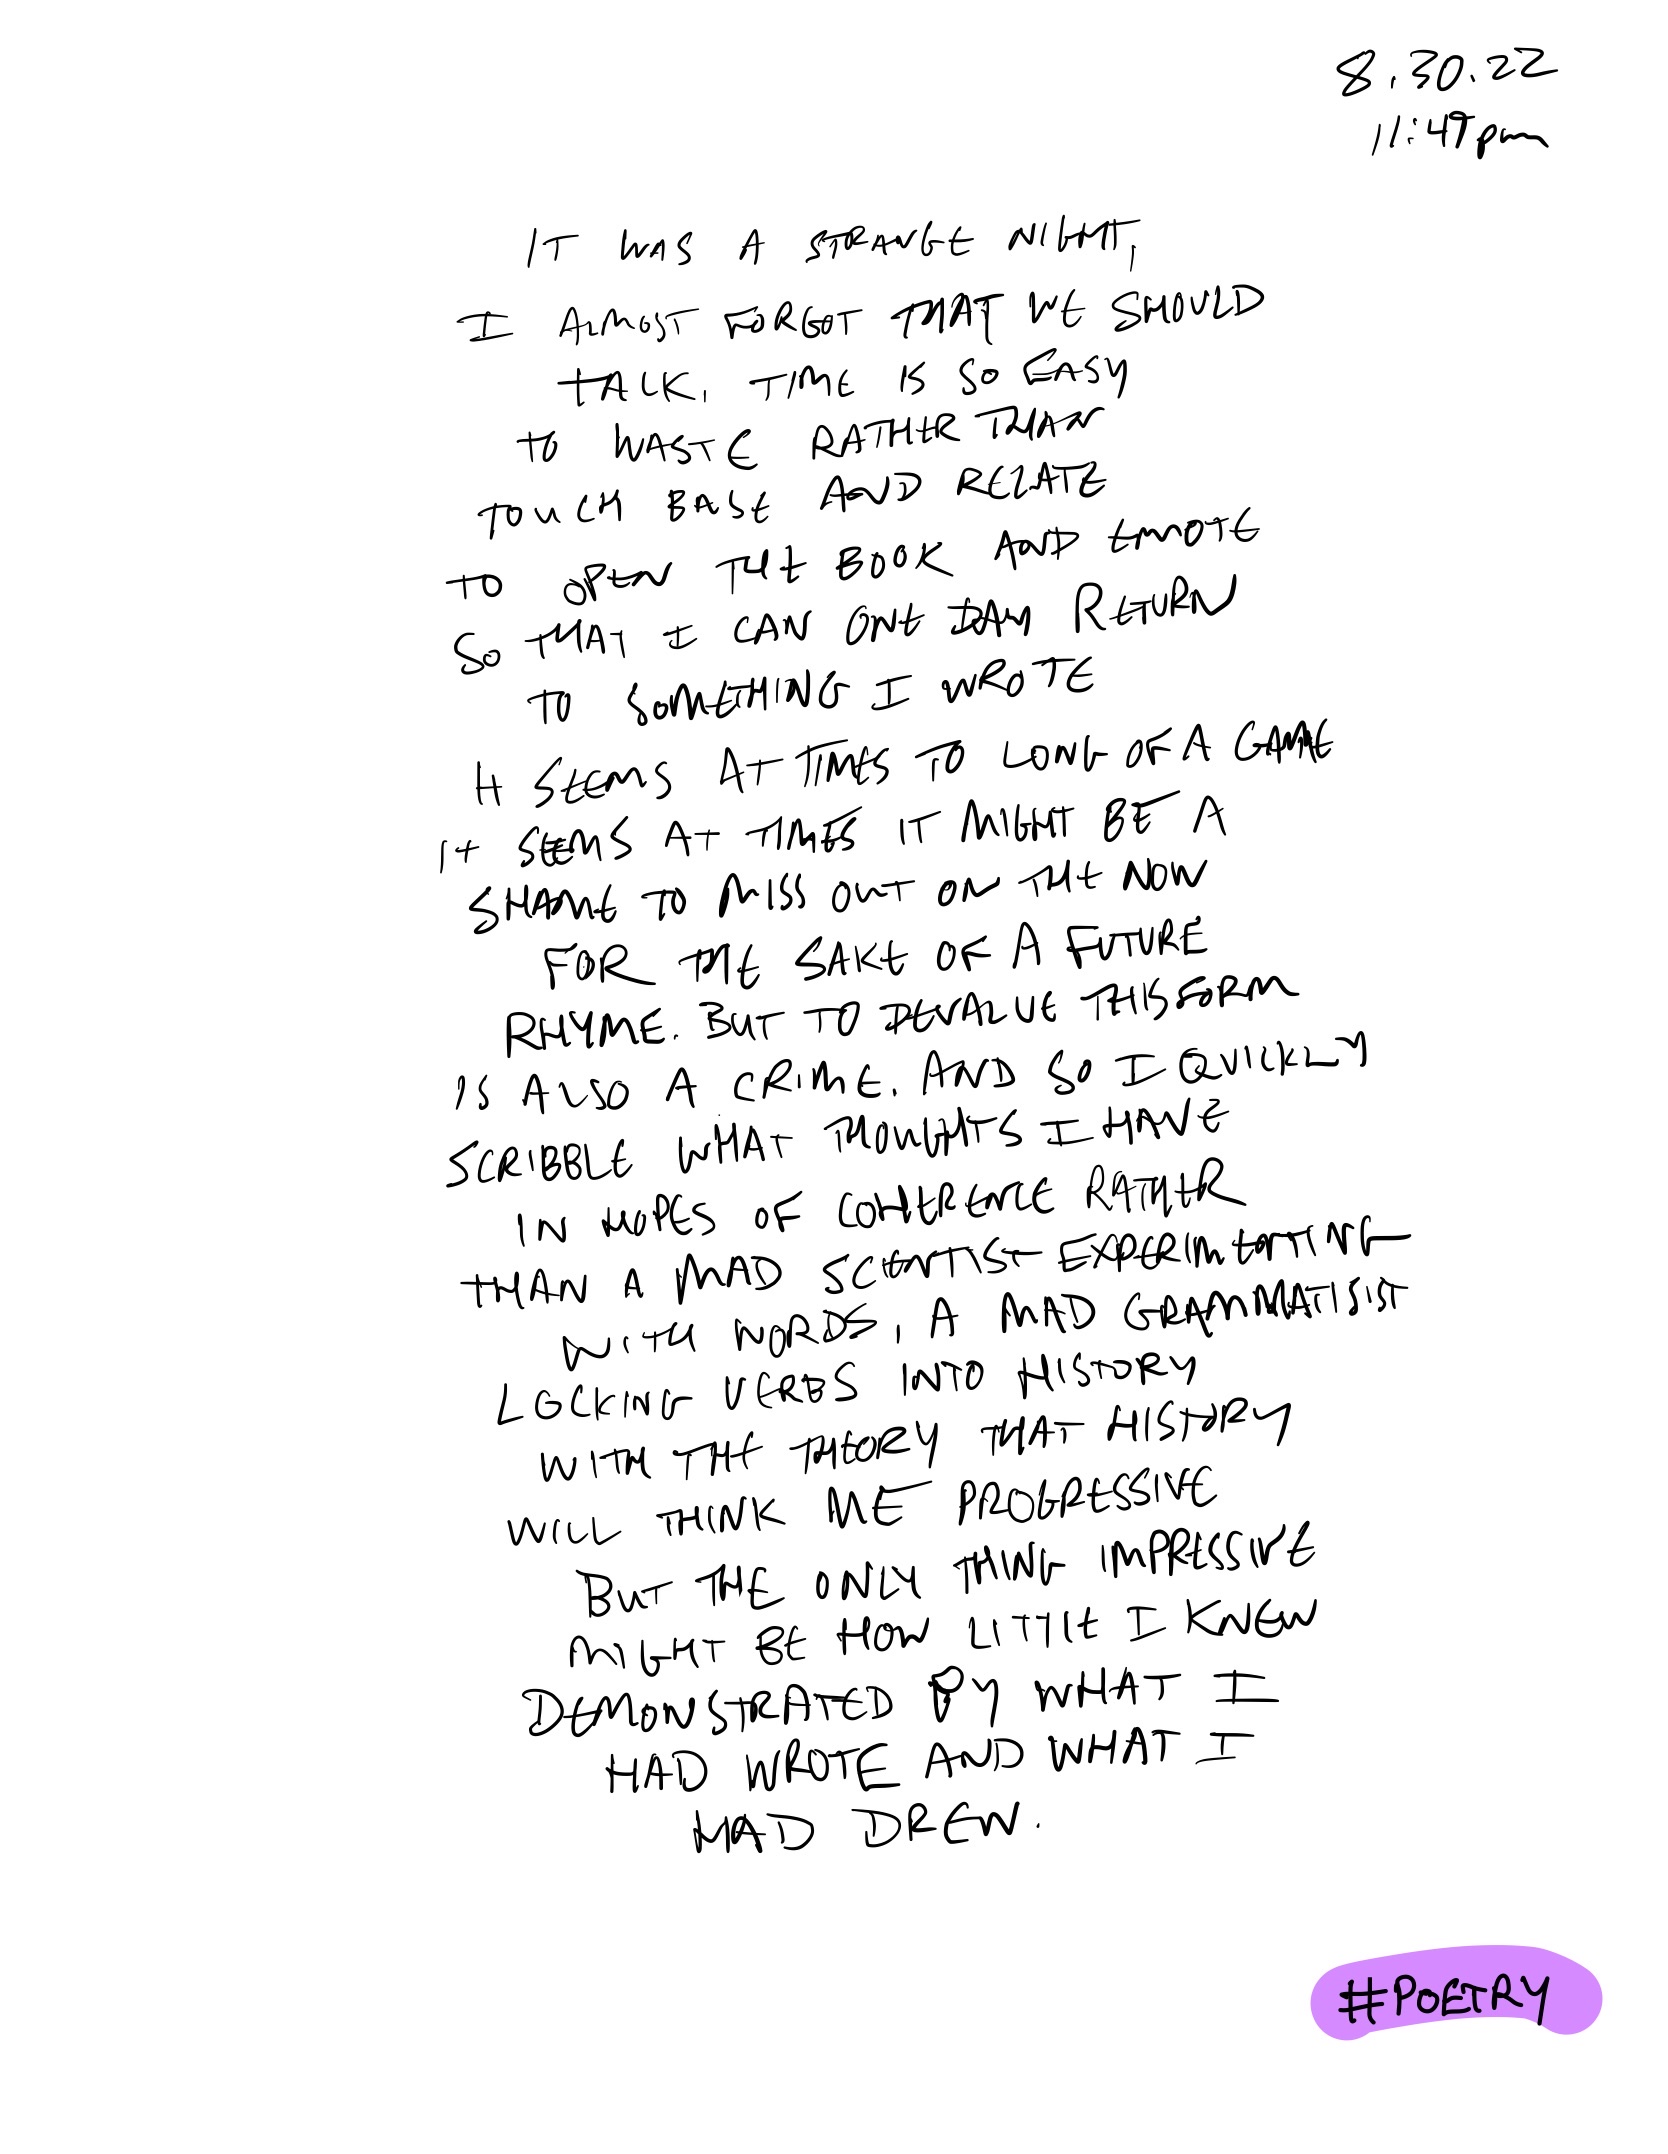 8.30.22
11:49pm
IT WAS A STRANGE NIGHT,
I ALMOST FORGOT THAT WE SHOULD
TALK. TIME IS SO EASY
TO WASTE RATHER THAN
TOUCH BASE AND RELATE
TO OPEN THE BOOK AND EMOTE
SO THAT I CAN ONE DAY RETURN
TO SOMETHING I WROTE
IT SEEMS AT TIMES TO LONG OF A GAME
IT SEEMS AT TIMES IT MIGHT BE A
SHAME TO MISS OUT ON THE NOW
FOR THE SAKE OF A FUTURE
RHYME. BUT TO DEVALUE THIS FORM
IS ALSO A CRIME. AND SO I QUICKLY
SCRIBBLE WHAT THOUGHTS I HAVE
IN HOPES OF COHERENCE RATHER
THAN A MAD SCIENTIST EXPERIMENTING
WITH WORDS, A MAD GRAMMATISIST
LOCKING VERBS INTO HISTORY
WITH THE THEORY THAT HISTORY
WILL THINK ME PROGRESSIVE
BUT THE ONLY THING IMPRESSIVE
MIGHT BE HOW LITTLE I KNEW
DEMONSTRATED BY WHAT I
HAD WROTE AND WHAT I
HAD DREW.
#POETRY